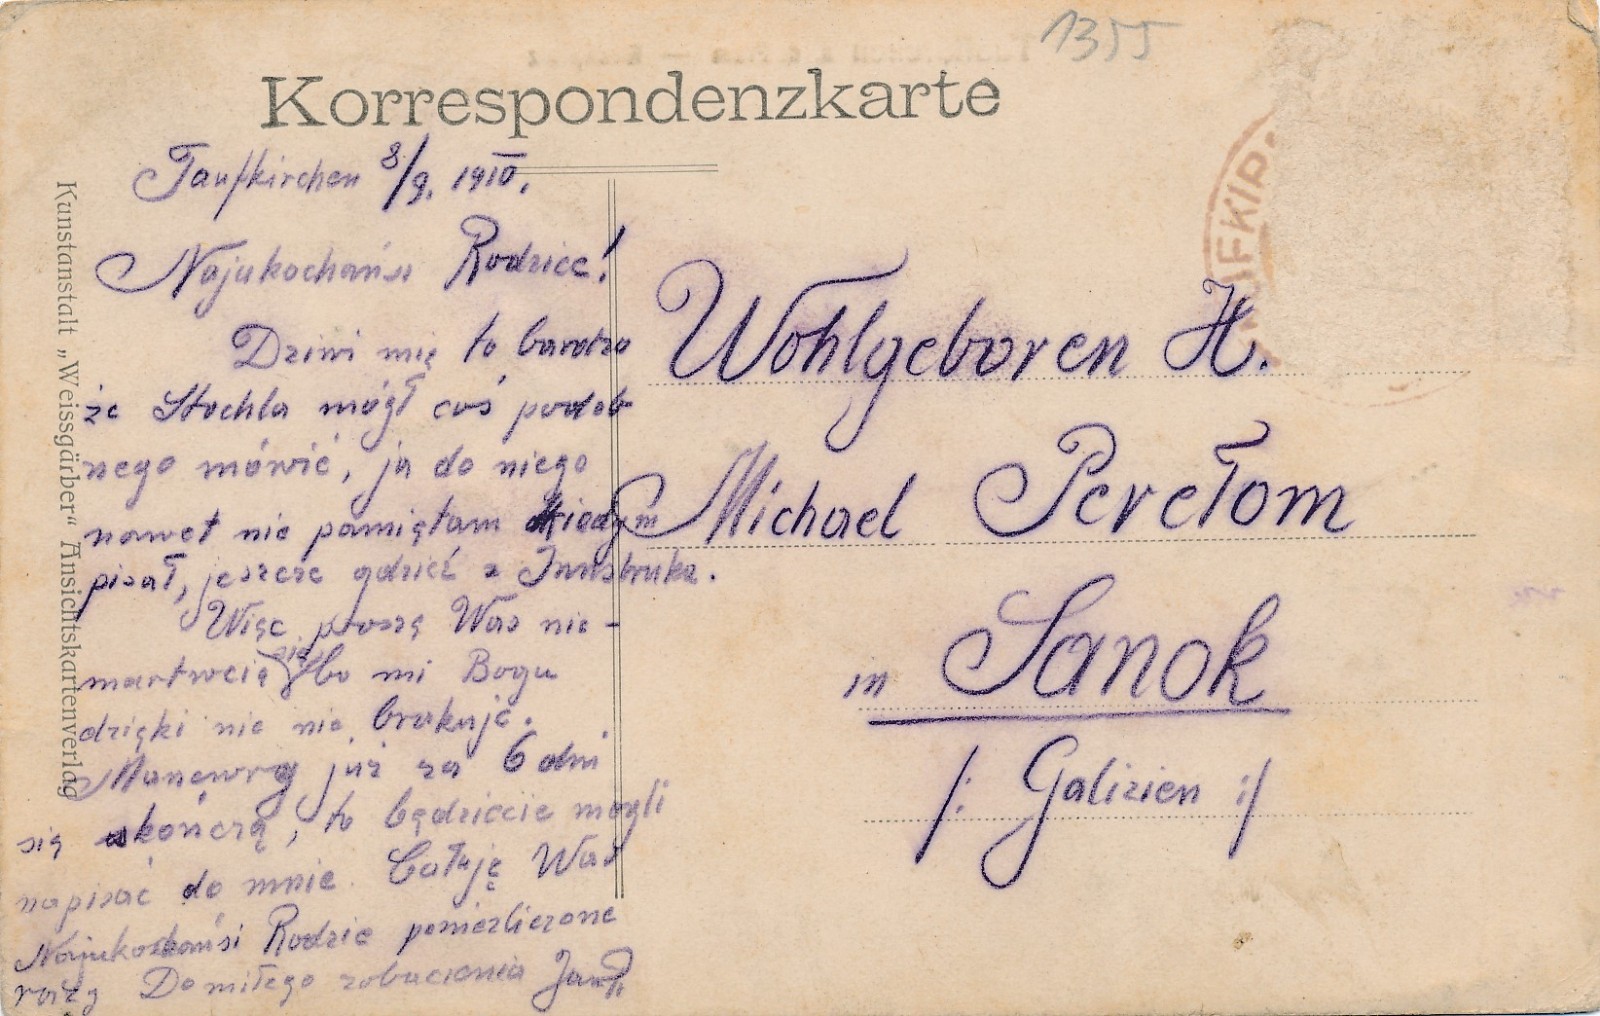 1355
Korrespondenzkarte
Taufkirchen 8/9. 1910.
Najukochańsi Rodzice!
Dziwi mię to bardzo
że Stochla mógł coś podob
nego mówić, ja do niego
nawet nie pamiętam kiedym
pisał, jeszcze gdzieś z Innsbruka.
Więc proszę Was nie-
martwcie się bo mi Bogu
dzięki nic nie brakuje.
Manewry już za 6 dni
się skończą, to będziecie mogli
napisać do mnie. Całuję Was
Najukochańsi Rodzice poniezliczone
razy Do miłego zobaczenia
Wohlgeboren H.
Michael Perełom
in Sanok
/: Galizien :/
AFKIR
Kunstanstalt „Weissgärber“ Ansichtskartenverlag